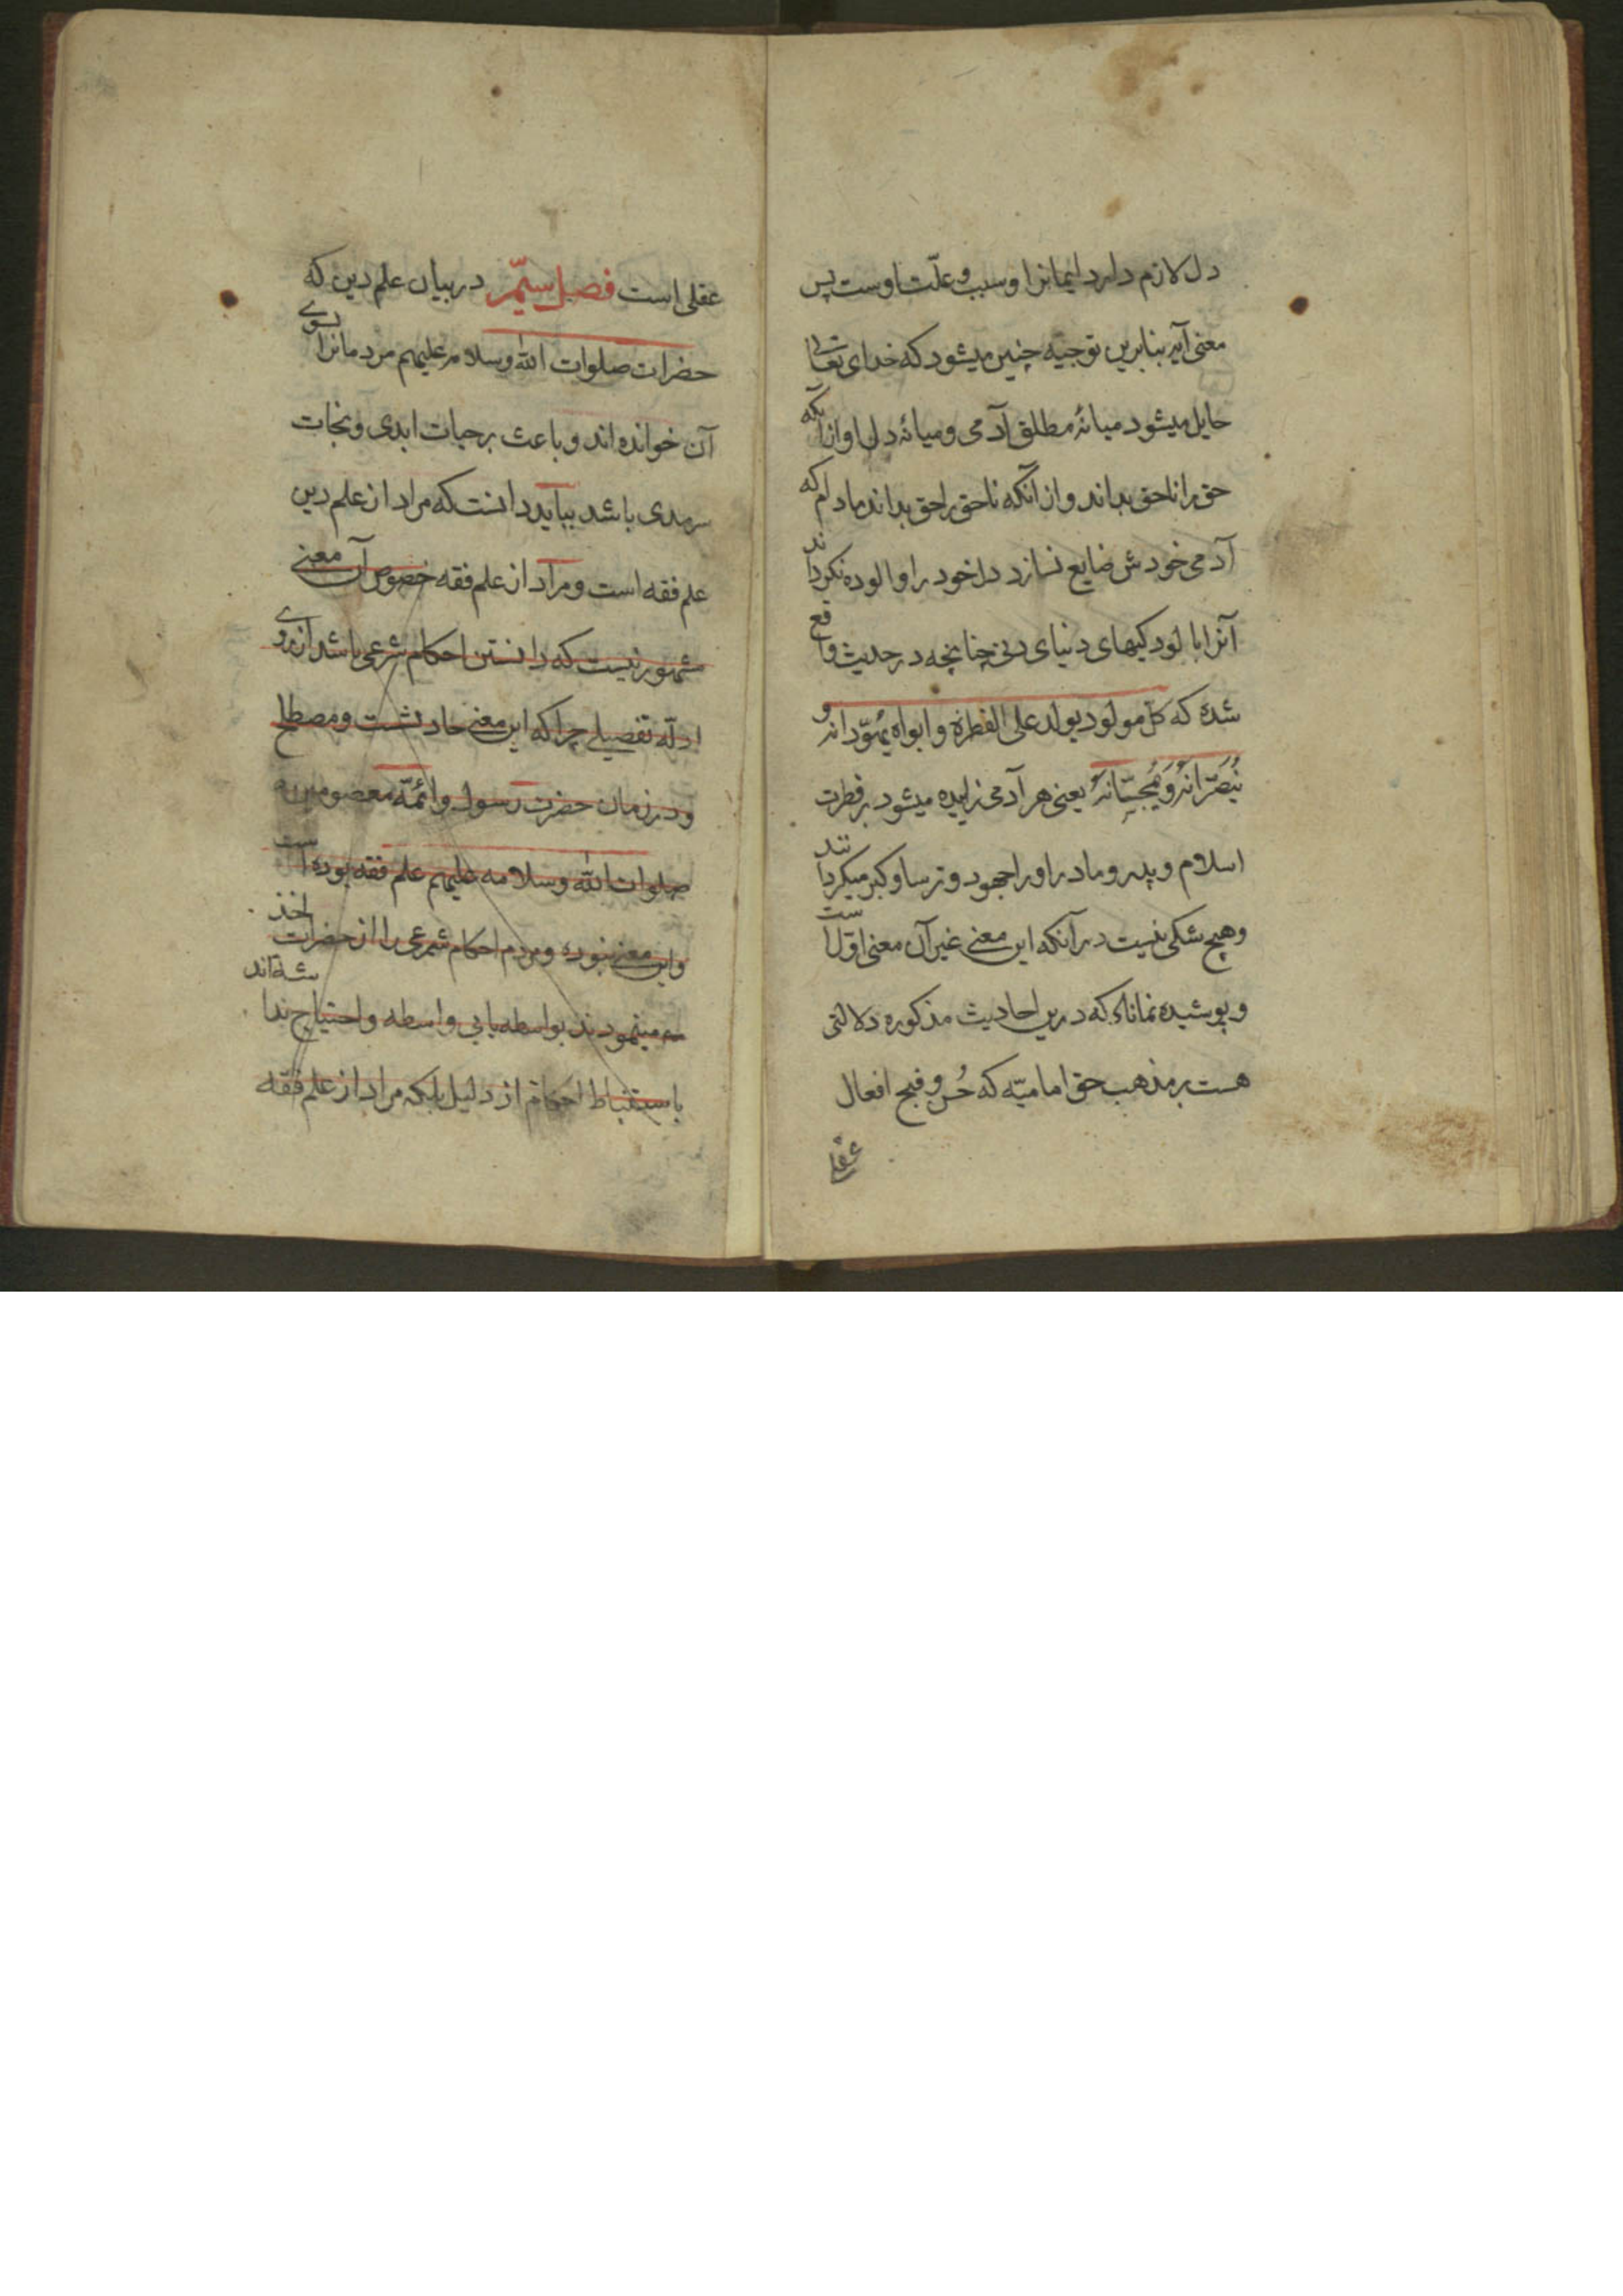 دل لازم دارد ایمانرا و سبب و علّت اوست پس
معنی آیه بنابرین توجیه چنین میشود که خدای تعالی
حایل میشود میانهٔ مطلق آدمی و میانهٔ دل او از آنکه
حق را ناحق بداند و از آنکه ناحق را حق بداند مادام که
آدمی خودش ضایع نسازد دل خود را و الوده نکرداند
آنرا بالودکیهای دنیای دنی چنانچه در حدیث واقع
شده که کل مولود یولد علی الفطرة و ابواه یُهَوِّدانه و
یُنَصِّرانهُ وَیُمَجِّسانهُ یعنی هر آدمی زاییده میشود بر فطرت
اسلام و پدر و مادر او را جهود و ترسا و کبر میکردانند
و هیچ شکی نیست در آنکه این معنی غیر آن معنی اوّل است
و پوشیده نماناد که درین احادیث مذکوره دلالتی
هست بر مذهب حق امامیّه که حُسن و قبح افعال
عقلی
عقلی است فصل سیّم در بیان علم دین که
حضرات صلوات الله و سلامه علیهم مردمانرا بسوی
آن خوانده‌اند و باعث بر حیات ابدی و نجات
سرمدی باشد بباید دانست که مراد از علم دین
علم فقه است و مراد از علم فقه خصوص آن معنی
مشهور نیست که دانستن احکام شرعی باشد از روی
ادلّه تفصیلی چرا که این معنی حادثست و مصطلح
و در زمان حضرت رسول و ائمّه معصومین
صلوات الله و سلامه علیهم علم فقه بوده است
و این معنی نبوده و مردم احکام شرعی را از حضرات اخذ
مینمودند بواسطه یا بی واسطه و احتیاج نداشته‌اند
باستنباط احکام از دلیل بلکه مراد از علم فقه